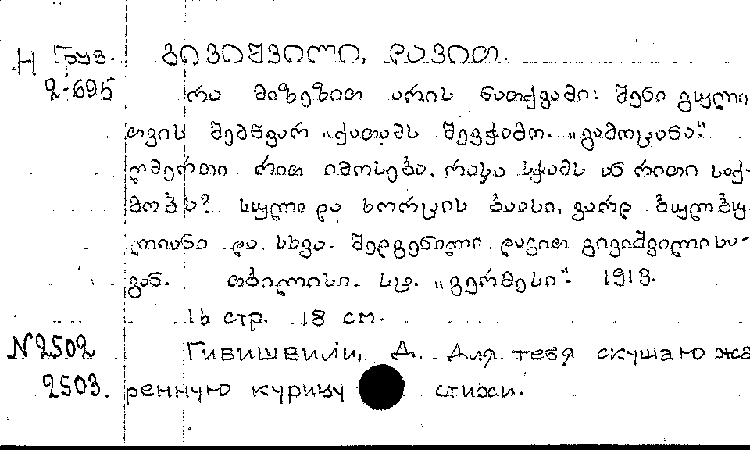 Н Груз. გივიშვილი, დავით.
2-695 რა მიზეზით არის ნათქვამი: შენი გული
თვის შემწვარ „ქათამს შევჭამო. „გამოცანა“.
ღმერთი რით იმოსება, რასა სჭამს ან რითი საქ-
მობს? სული და ხორცის ბაასი, ვარდ ბულბუ-
ლიანი და სხვა. შედგენილი დავით გივიშვილისა-
გან. თბილისი. სტ. „გერმესი“. 1913.
16 стр. 18 см.
N 2502 Гивишвили, Д. Для тебя скушаю жа
2503. ренную курицу стихи.